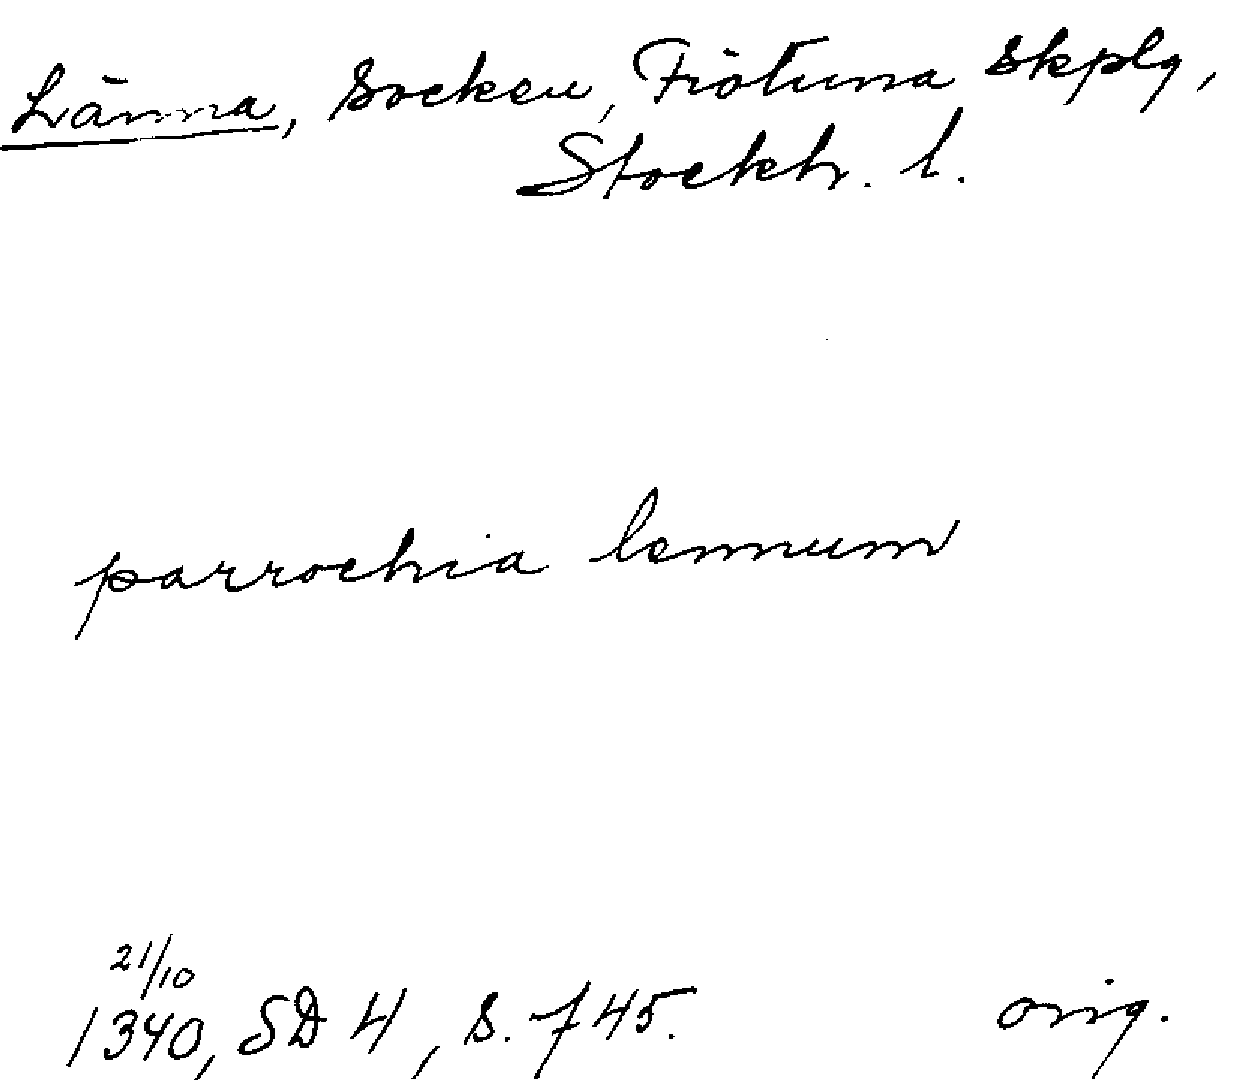 Länna, Socken, Frötuna Skplg,
Stockh. l.
parrochia lennum
21/10
1340, SD 4, s. 745. orig.